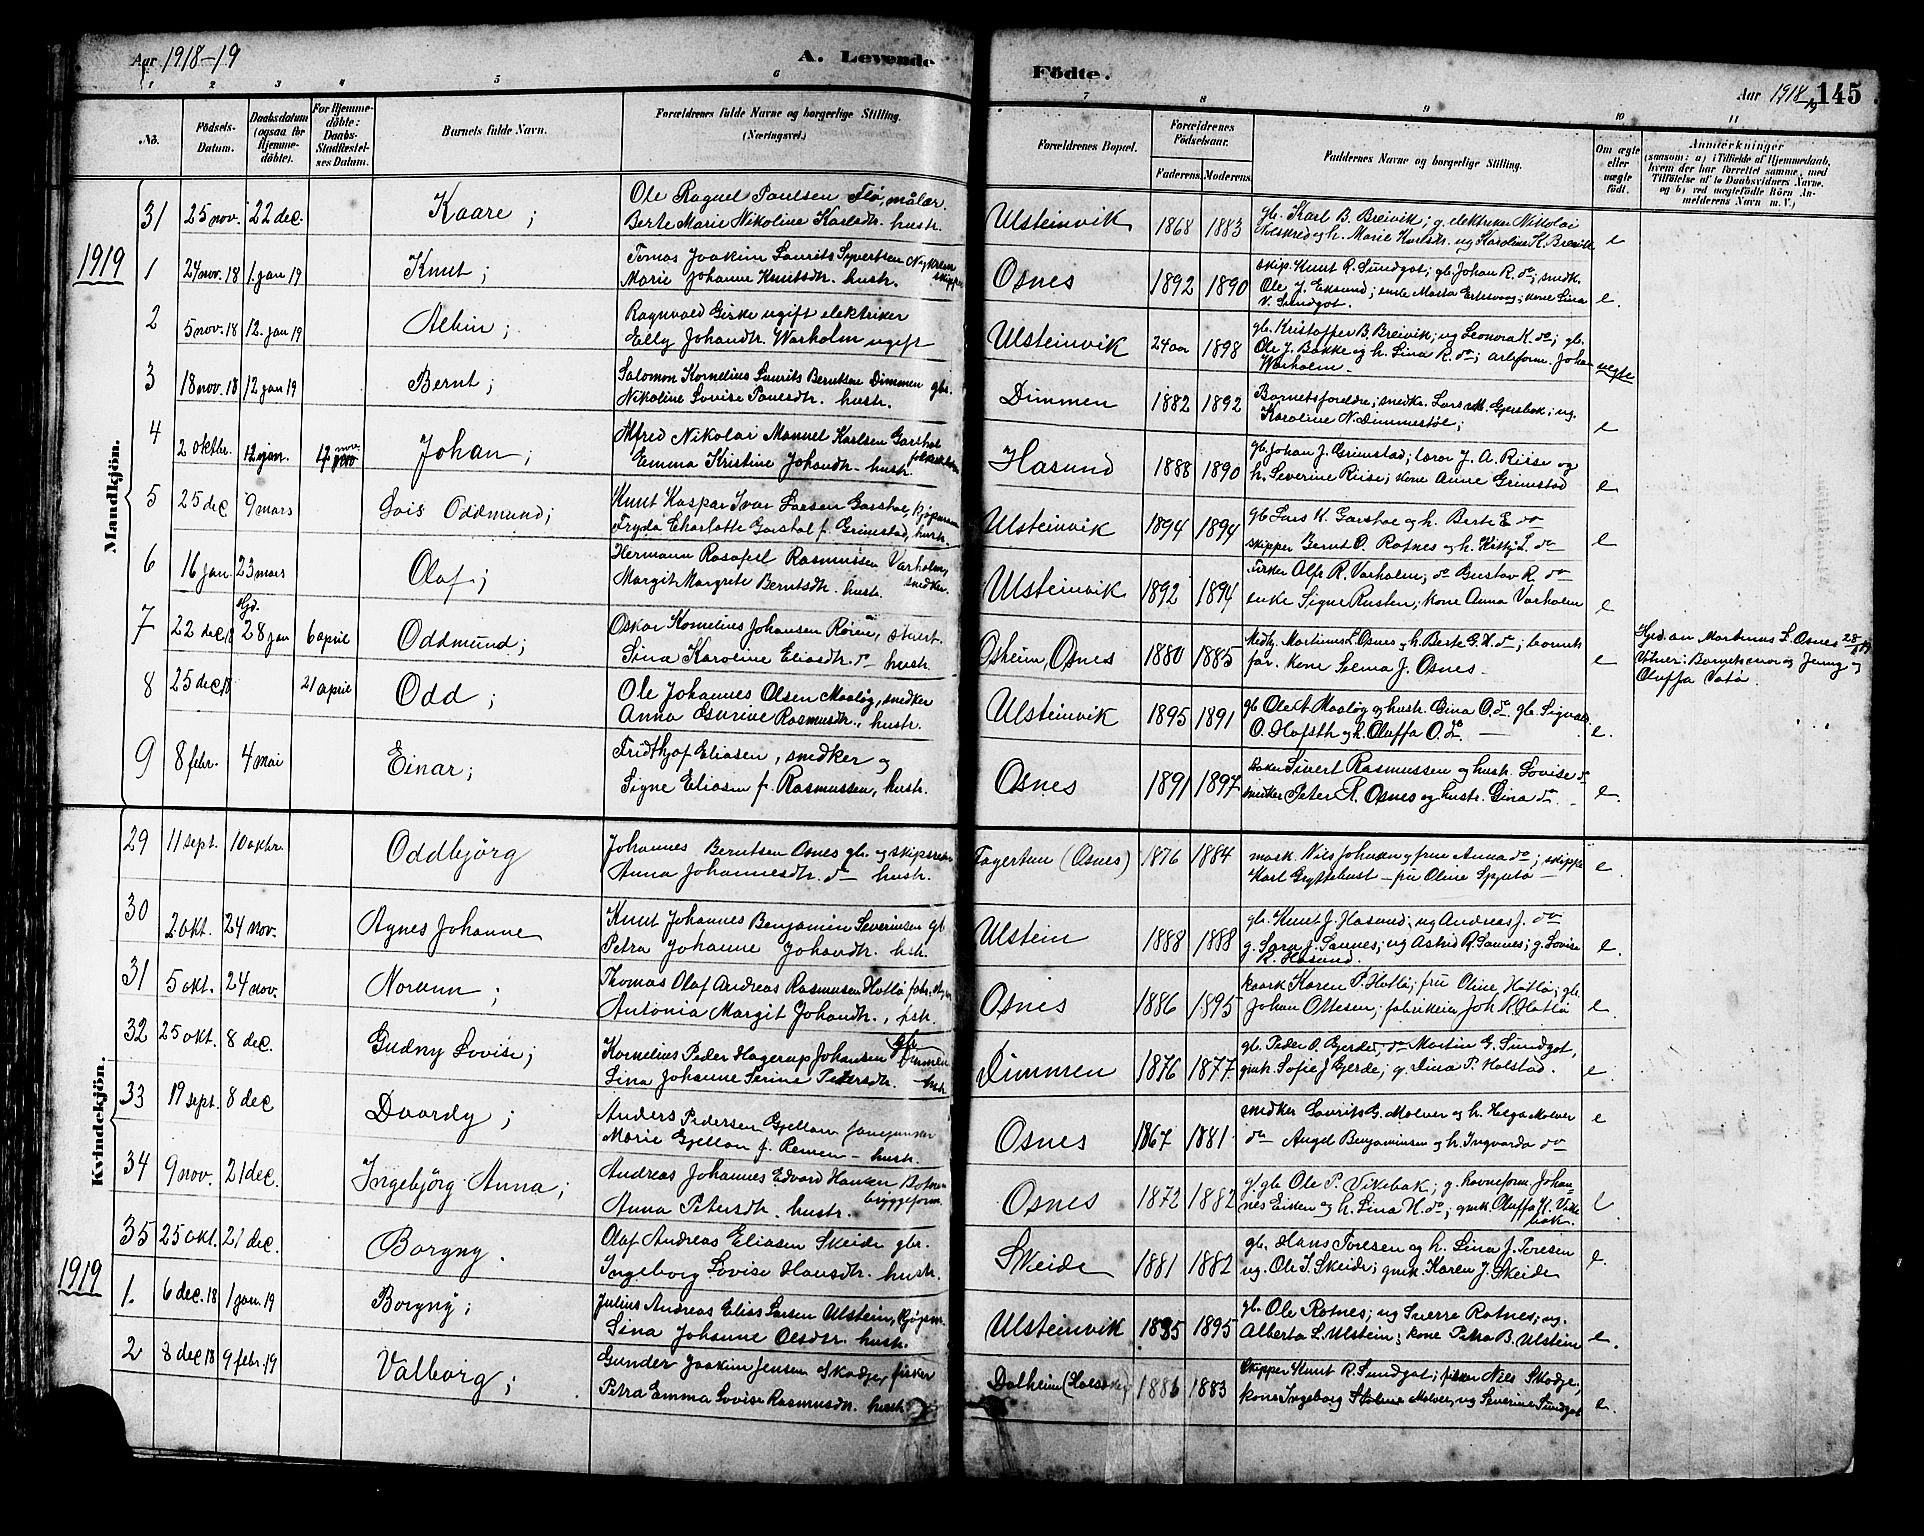 Aar 1918-19
A. Levende
Födte.
Aar 1918/19 145
1 2 3 4 5 6 7 8 9 10 11
No.
Födsels-Datum.
Daabsdatum (ogsaa for Hjemmedöbte).
For Hjemmedöbte: Daabs-Stadfæstelses Datum.
Barnets fulde Navn.
Forældrenes fulde Navne og borgerlige Stilling. (Næringsvei.)
Forældrenes Bopæl.
Forældrenes Födselsaar.
Faderens. Moderens.
Faddernes Navne og borgerlige Stilling.
Om ægte eller uægte födt.
Anmærkninger
(saasom: a) i Tilfælde af Hjemmedaab, hvem der har forrettet samme, med Tilföielse af to Daabsvidners Navne, og b) ved uegtefödte Börn Anmelderens Navn m. V.)
Mandkjön.
31 25 nov. 22 dec. Kaare; Ole Raguel Paulsen Flø, målar
Berte Marie Nikoline Karlsdtr. hustr.
Ulsteinvik 1868 1883 gb. Karl B. Breivik; g. elektriker Nikolai
h. Marie Karlsdr. ug Karoline K. Breivik e
1919
1 24 nov. 18 1. jan 19 Knut; Tomas Joakim Laurits Syvertsen skipper
Marie Johanne Knutsdtr. hustr.
Osnes 1892 1890 skip. Knut R. Sundgot; gb. Johan R. do; smedk.
Ole J. Eksund; enke Marta; kone Lina
V. Sundgot. e.
2 5 nov. 18 12. jan 19 Albin; Ragnvald Girke ugift elektriker
Elly Johansdtr. Warholm ugift
Ulsteinvik 24 aar 1898 gb. Kristoffer B. Breivik; ug Leonora K. do; gb.
Ole J. Bakke og h. Lina R. do; arbform. Johan
Warholm. uegte
3 18 nov. 18 12 jan 19 Bernt; Salomon Kornelius Laurits Berntsen Dimmen gbr.
Nikoline Lovise Paulsdtr. hustr.
Dimmen 1882 1892 Barnetsforeldre; smedk. Lars M. Gjersbak; ug.
Karoline N. Dimmestøl; e
4 2 oktbr. 12 jan. 17 nov Johan; Alfred Nikolai Manuel Karlsen Garshol
Emma Kristine Johansdtr. hustr.
Hasund 1888 1890 gb. Johan J. Grimstad; lærer J. A. Riise og
h. Severine Riise; kone Anne Grimstad e
5 25 dec 9 mars Lois Oddmund; Knut Kaspar Ivar Larsen Garshol, kjøpmann
Fryda Charlotte Garshol f. Grimstad, hustr.
Ulsteinvik 1894 1894 gb Lars K. Garshol og h. Berte E do
skipper Bernt O. Rotnes og h. Kitty L. do e
6 16 jan. 23 mars Olaf; Hermann Rasmussen Varholm,
Margit Margrete Berntsdtr. hustr. snedker.
Ulsteinvik 1892 1894 fisker Alfe R. Varholm; do Gustav R. do
enke Signe Rusten; kone Anna Varholm e
7 22 dec 18 Hjd. 28 jan 6 april Oddmund; Oskar Kornelius Johansen Røren, stuert.
Lina Karoline Eliasdtr. do hustr.
Osheim, Osnes 1880 1885 Martinus L. Osnes og h. Berte G. H. do; barnets
far. kone Selma J. Osnes. e
Hjd. av Martinus L. Osnes 28/1 19
Vitner: Barnets mor og Jenny og
Oluffa Vatø.
8 25 dec 18 21 april Odd; Ole Johannes Olsen Maaløy, snedker
Anna Gurine Rasmusdtr., hustr.
Ulsteinvik 1895 1891 gb Ole A Maaløg og hustr. Gina O. do. gb. Sigvald
O. Hofsth og h. Oluffa O. do. e.
9 8 febr. 4 mai Einar; Fridthjof Eliasen, snedker og
Signe Eliasen f. Rasmussen, hustr.
Osnes 1891 1897 Sivert Rasmussen og hustr. Lovise do
snedker Peter R. Osnes og hustr. Gina do. e.
Kvindekjön.
29 11 sept. 10 oktbr. Oddbjörg Johannes Berntsen Osnes gb. og skipsreder
Anna Johannesdtr. do hustr.
Fagertun (Osnes) 1876 1884 mask. Nils Johnsen og frue Anna do; skipper
Karl Gryttehust - frk Oline Spjutø e.
30 2 okt. 24 nov. Agnes Johanne Knut Johannes Benjamin Severinsen gb
Petra Johanne Johansdtr. hstr.
Ulstein 1888 1888 gb. Knut J. Hasund; ug Andreas J. do
g. Sara J. Saunes; ug Astrid R. Saunes; g. Lovise
R. Hasund. e.
31 5 okt. 24 nov. Norunn; Thomas Olaf Andreas Rasmussen Hatlø
Antonia Margit Johansdtr., hstr.
Osnes 1886 1895 Karen P. Hatlø; frü Oline Hatlø; gb.
Johan Ottesen; fabrikeier Joh. R. Hatlø e.
32 25 okt. 8 dec. Gudny Lovise; Kornelius Peder Hagerup Johansen gb. Dimmen
Lina Johanne Serine Petersdtr. hustr.
Dimmen 1876 1877 gb. Peder O. Gjerde, do Martin G. Sundgot,
gmk. Sofie J Gjerde; g. Lina P. Holstad. e.
33 19 sept. 8 dec Daardy; Anders Pedersen Gjellan
Marie Gjellan f. Remen - hustr.
Osnes 1867 1881 snedker Laurits G. Molver og h. Helga Molver
do Angel Benjaminsen og h. Ingvarda do e
34 9 nov. 21 dec. Ingebjörg Anna; Andreas Johannes Edvard Hansen bryggeform.
Anna Petersdtr. hustr.
Osnes 1872 1882 gb. Ole P. Vikebak; g. havneform. Johannes
Eiken og h. Lina H. do; gmk. Oluffa K. Vikebak e
35 25 okt. 21 dec. Borgny. Olaf Andreas Eliasen Skeide gbr.
Ingeborg Lovise Hansdtr. hustr.
Skeide 1881 1882 gb. Hans Toresen og h. Lina J. Toresen
ug. Ole I. Skeide; gmk. Karen J. Skeide e.
1919
1. 6 dec. 18 1 jan. 19 Borgny; Julius Andreas Elias Larsen Ulstein, kjøpm.
Lina Johanne Olsdtr. hustr.
Ulsteinvik 1895 gb. Ole Rotnes; ug Sverre Rotnes; ug.
Alberta L. Ulstein; kone Petra B. Ulstein e.
2 8 dec 18 9 febr. 19 Valborg; Gunder Joakim Jensen Skodje, fisker
Petra Emma Lovise Rasmusdtr. hustr.
Dalheim 1883 skipper Knut R. Sundgot; fisker Nils Skodje,
kone Ingeborg Molver, ug Severine Sundgot e.